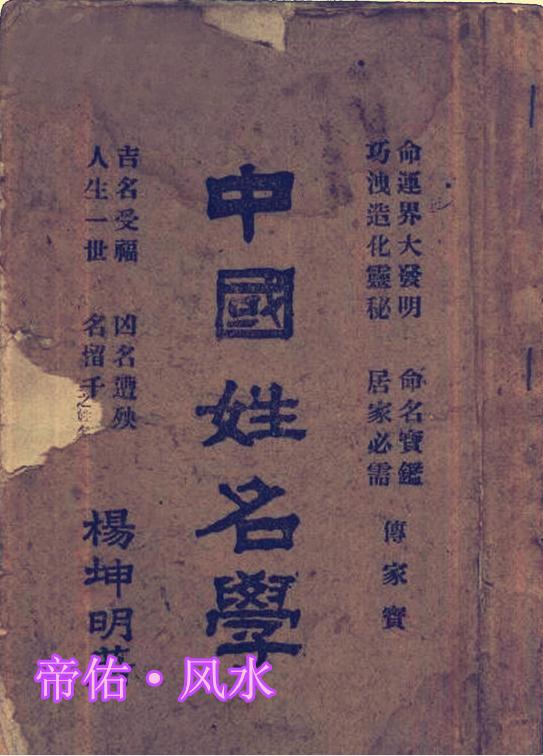 命運界大發明　命名寶鑑
巧洩造化靈秘　居家必需
傳家寶
中國姓名學
吉名受福　凶名遭殃
人生一世　名留千
楊坤明
帝佑·风水